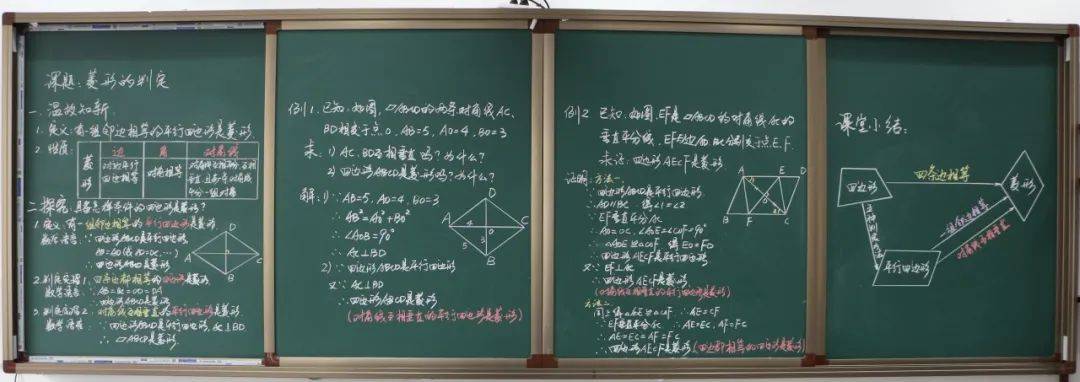 课题:菱形的判定
一.温故知新
1.定义:有一组邻边相等的平行四边形是菱形.
2.性质:
边 角 对角线
菱形
对边平行 四边相等
对角相等
对角线互相平分、互相垂直,且每一条对角线平分一组对角
二.探究:具备怎样条件的四边形是菱形?
1.定义:有一组邻边相等的平行四边形是菱形
数学语言:∵四边形ABCD是平行四边形
∴四边形ABCD是菱形
2.判定定理1:四条边都相等的四边形是菱形
数学语言:∵AB=BC=CD=DA
∴四边形ABCD是菱形
3.判定定理2:对角线互相垂直的平行四边形是菱形
数学语言:∵四边形ABCD是平行四边形,AC⊥BD
∴▱ABCD是菱形
A
B
C
D
例1.已知:如图,▱ABCD的两条对角线AC、
BD相交于点O,AB=5,AO=4,BO=3
求:1)AC、BD互相垂直吗?为什么?
2)四边形ABCD是菱形吗?为什么?
解:1)∵AB=5,AO=4,BO=3
∴AB²=AO²+BO²
∴∠AOB=90°
∴AC⊥BD
2)∵四边形ABCD是平行四边形
又∵AC⊥BD
∴四边形ABCD是菱形
(对角线互相垂直的平行四边形是菱形)
D
A 4 O C
5 3
B
例2.已知:如图,EF是▱ABCD的对角线AC的
垂直平分线,EF与边AD、BC分别交于点E、F.
求证:四边形AECF是菱形.
证明:方法一.
∵四边形ABCD是平行四边形
∴AD∥BC ∴∠1=∠2
∵EF垂直平分AC
∴AO=OC,∠AOE=∠COF=90°
∴△AOE≌△COF 得EO=FO
∴四边形AECF是平行四边形
又∵EF⊥AC
∴四边形AECF是菱形
(对角线互相垂直的平行四边形是菱形)
方法二
同一:得△AOE≌△COF ∴AE=CF
∵EF垂直平分AC ∴AE=EC,AF=FC
∴AE=EC=AF=FC
∴四边形AECF是菱形(四边都相等的四边形是菱形)
A E D
O
B F C
课堂小结:
四边形
四条边相等
菱形
一组邻边相等
对角线互相垂直
平行四边形